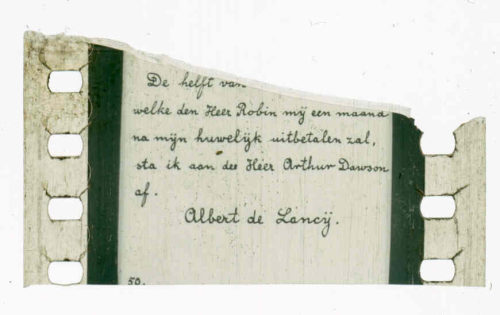 De helft van
welke den Heer Robin mij een maand
na mijn huwelijk uitbetalen zal,
sta ik aan den Heer Arthur Dawson
af.
Albert de Lancij.
50.